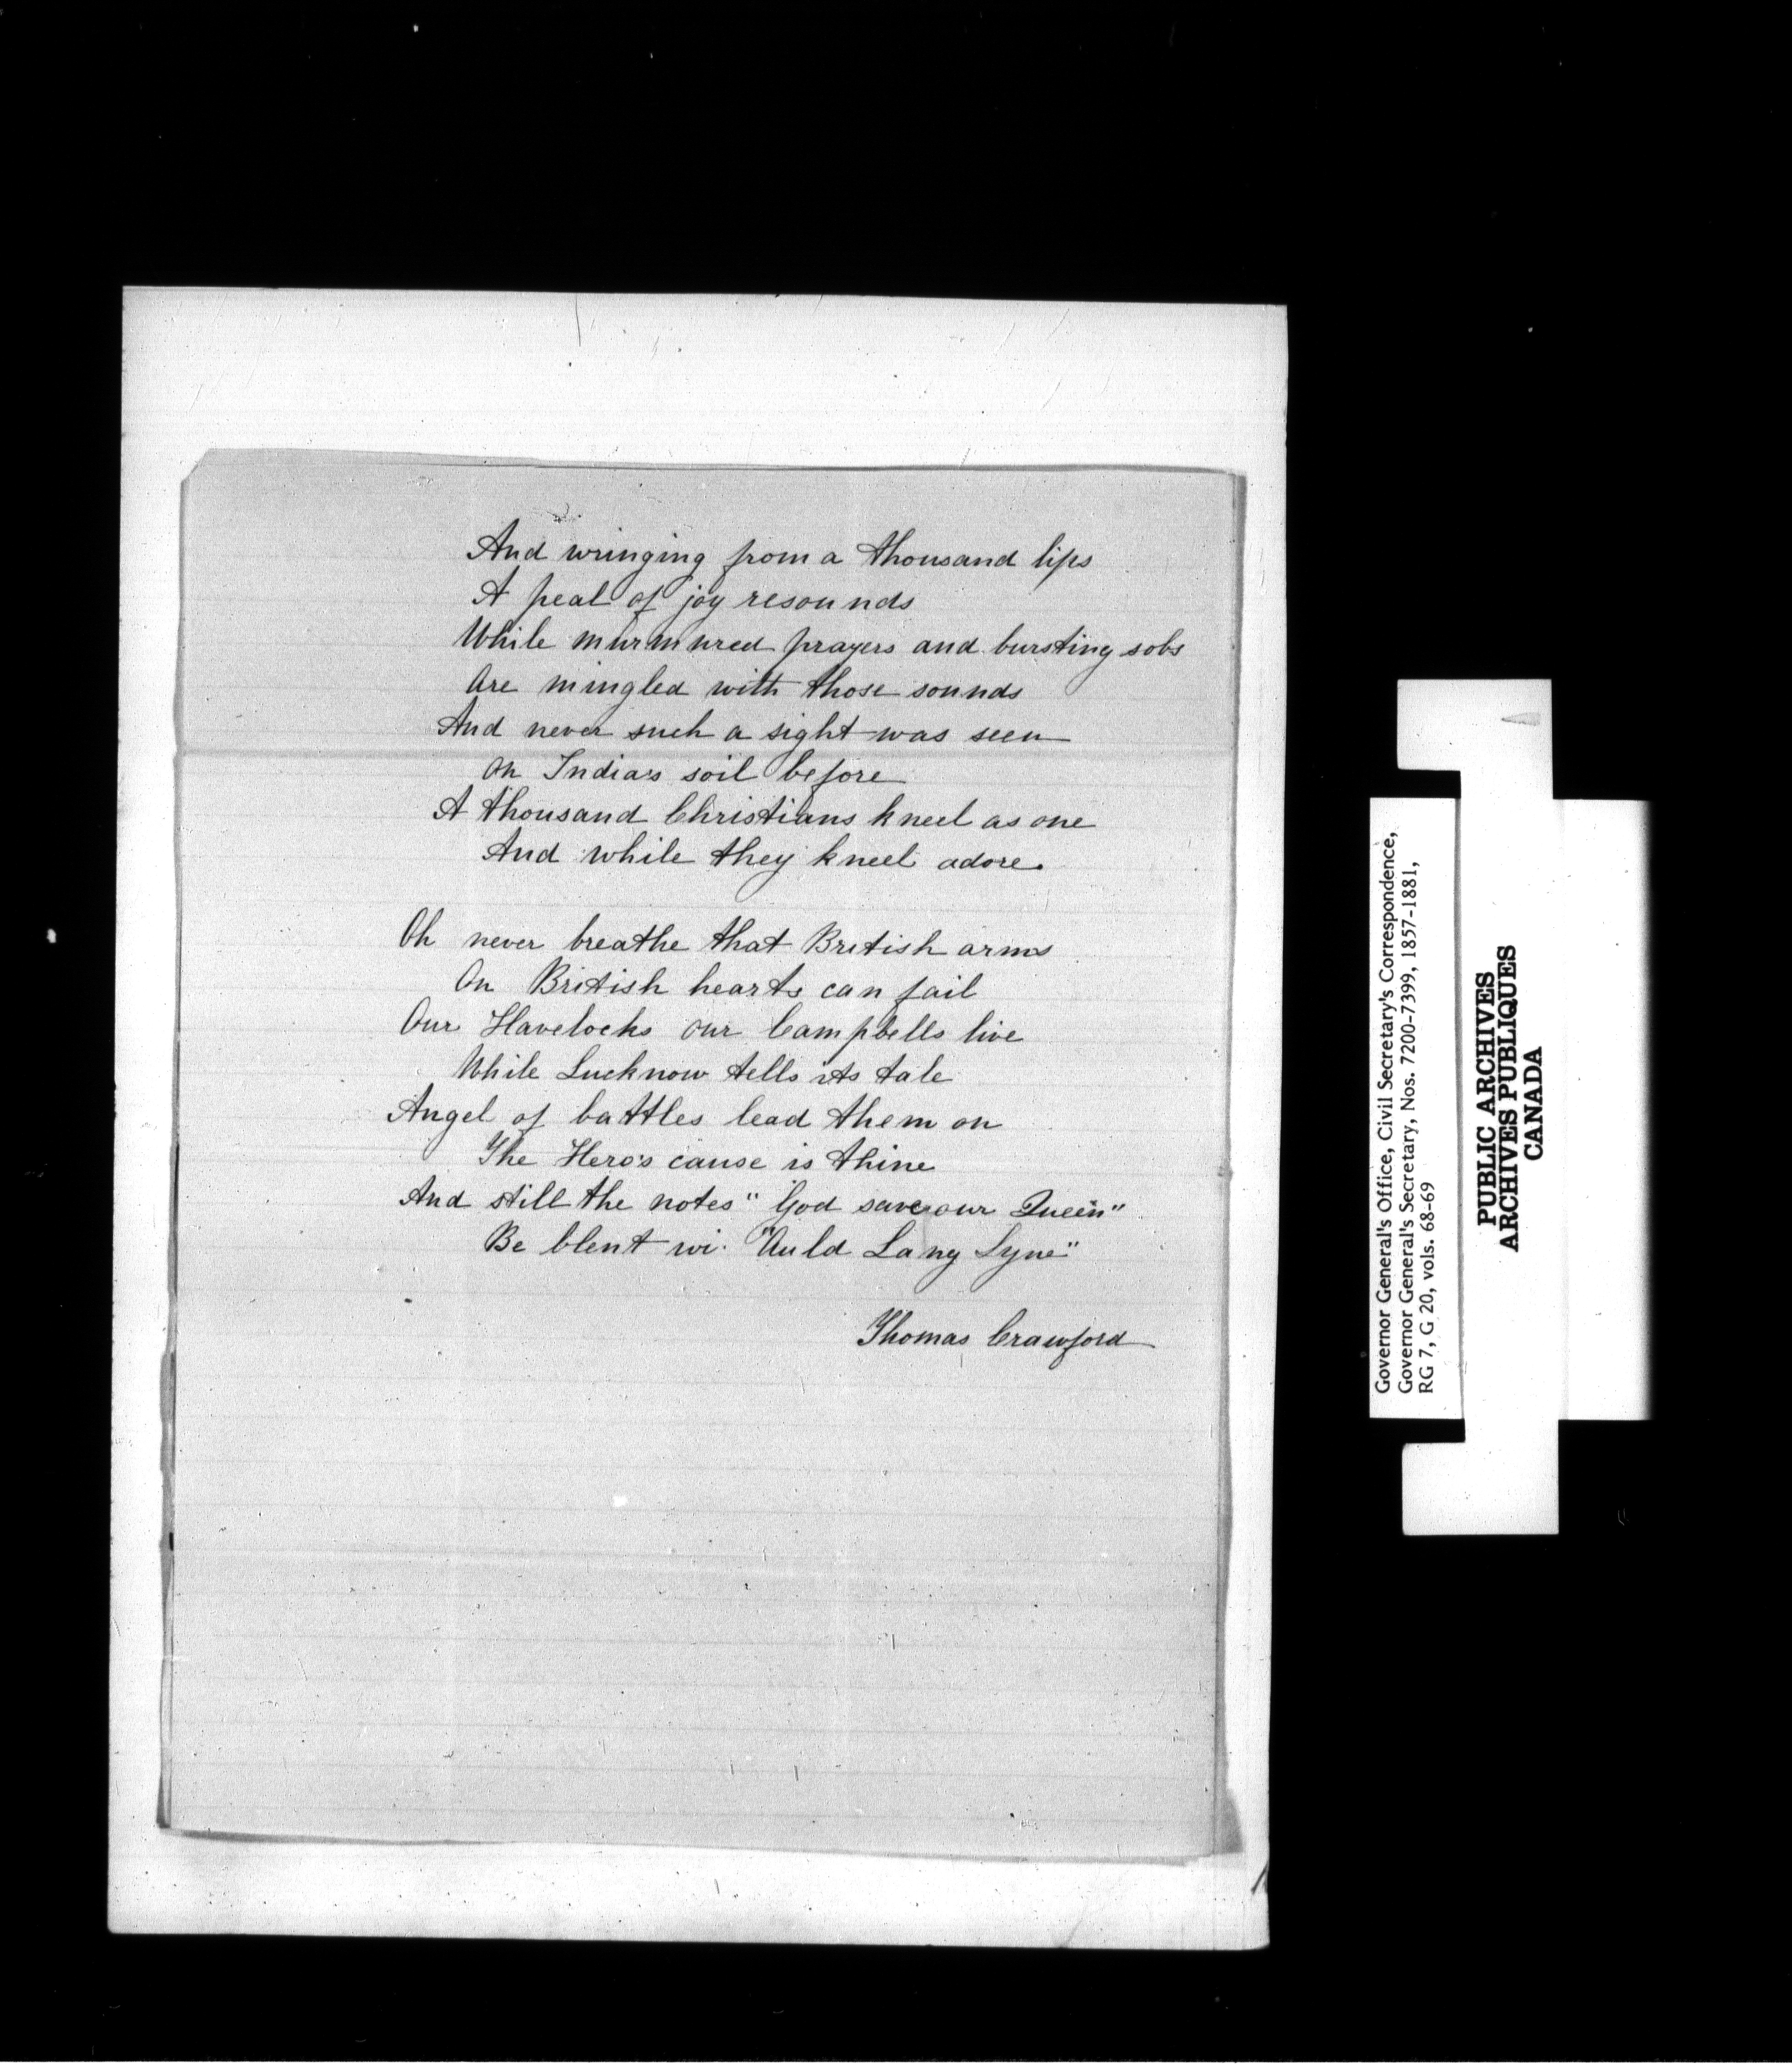 And wringing from a thousand lips
A peal of joy resounds
While murmured prayers and bursting sobs
Are mingled with those sounds
And never such a sight was seen
On India's soil before
A thousand Christians kneel as one
And while they kneel adore.
Oh never breathe that British arms
On British hearts can fail
Our Havelocks our Campbells live
While Lucknow tells its tale
Angel of battles lead them on
The Hero's cause is thine
And still the notes "God save our Queen"
Be blent wi' "Auld Lang Syne"
Thomas Crawford
Governor General's Office, Civil Secretary's Correspondence,
Governor General's Secretary, Nos. 7200-7399, 1857-1881,
RG 7, G 20, vols. 68-69
PUBLIC ARCHIVES
ARCHIVES PUBLIQUES
CANADA